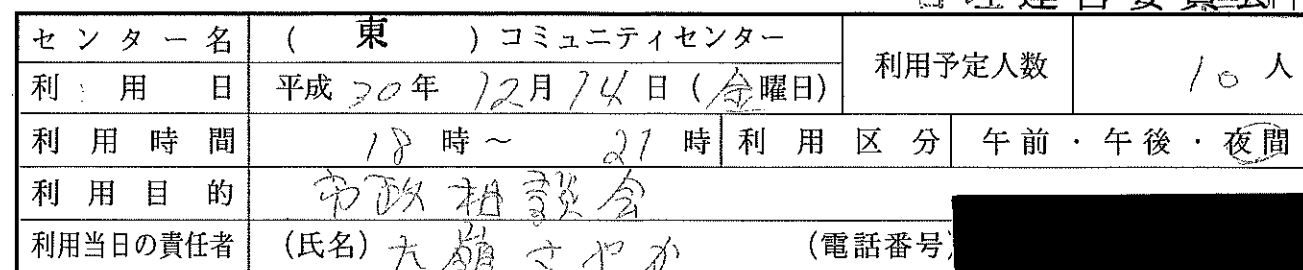 センター名 ( 東 ) コミュニティセンター
利用予定人数 10人
利用日 平成30年 12月14日 (金曜日)
利用時間 18時～ 21時 利用区分 午前・午後・夜間
利用目的 市政相談会
利用当日の責任者 (氏名) 大嶺さやか (電話番号)